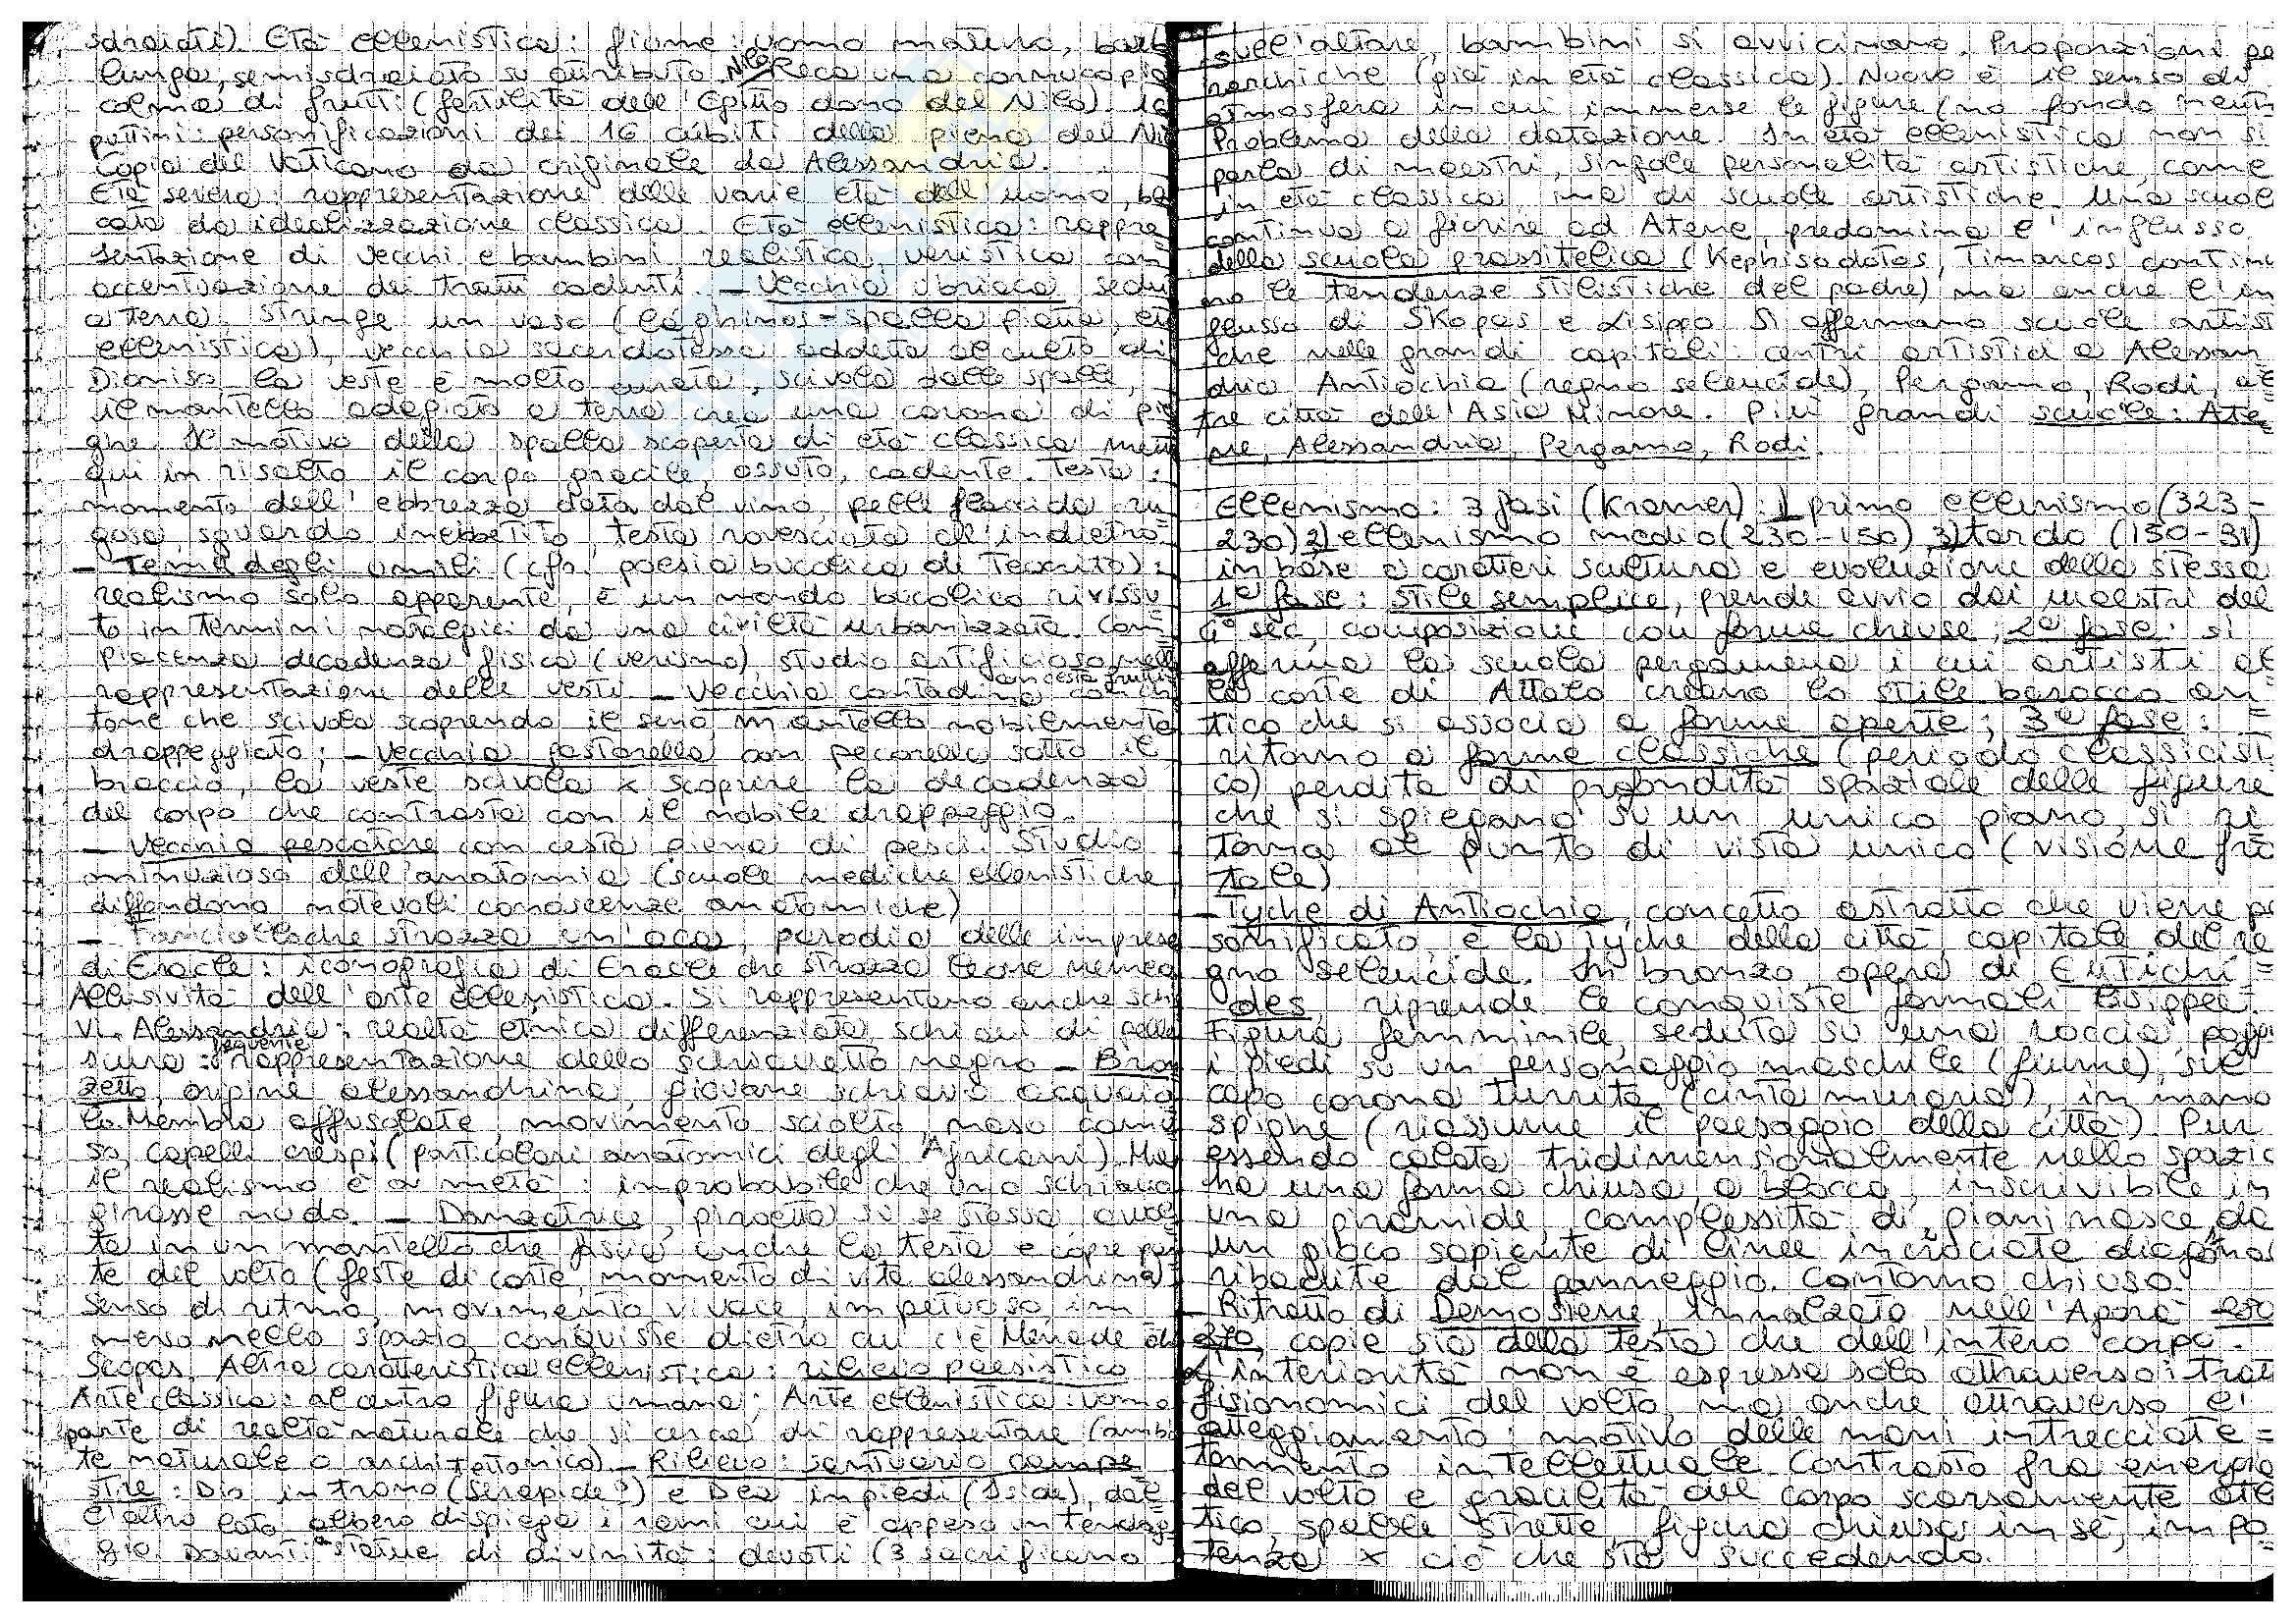 sdraiati). Età ellenistica: fiume: uomo maturo, barb
lunga, semisdraiato su attributo. Nilo Reca una cornucopia
colma di frutti (fertilità dell'Egitto dono del Nilo). 16
puttini: personificazioni dei 16 cubiti della piena del Ni
Copia del Vaticano da originale da Alessandria.
Età severa: rappresentazione delle varie età dell'uomo, bl
cata da idealizzazione classica. Età ellenistica: rappre=
sentazione di vecchi e bambini realistica, veristica con
accentuazione dei tratti cadenti. - Vecchia ubriaca sedu
a terra. Stringe un vaso (laghinos - spalla piatta, età
ellenistica), vecchia sacerdotessa addetta al culto di
Dioniso la veste è molto curata, scivola dalle spalle,
il mantello adagiato a terra crea una corona di pie
ghe. Il motivo della spalla scoperta di età classica mette
qui in risalto il corpo gracile, ossuto, cadente. Testa:
momento dell'ebbrezza data dal vino, pelle flaccida ru=
gosa, sguardo inebetito, testa rovesciata all'indietro
- Tema degli umili (cfr. poesia bucolica di Teocrito):
realismo solo apparente, è un mondo bucolico rivissu
to in termini nostalgici da una civiltà urbanizzata. Com=
piacenza decadenza fisica (verismo), studio artificioso nella
rappresentazione delle vesti - Vecchia contadina con cesta frutti con chi
tone che scivola scoprendo il seno, mantello nobilmente
drappeggiato; - Vecchia pastorella con pecorella sotto il
braccio, la veste scivola x scoprire la decadenza
del corpo che contrasta con il nobile drappeggio.
- Vecchio pescatore con cesta piena di pesci. Studio
minuzioso dell'anatomia (scuole mediche ellenistiche
diffondono notevoli conoscenze anatomiche)
- Fanciullo che strozza un'oca, parodia delle imprese
di Eracle: iconografia di Eracle che strozza leone nemeo
Allusività dell'arte ellenistica. Si rappresentano anche schi
vi. Alessandria: realtà etnica differenziata schiavi di pelle
scura: frequente rappresentazione dello schiavetto negro - Bron
zetto, origine alessandrina, giovane schiavo acquaio
lo. Membra affusolate, movimento sciolto, naso camu
so, capelli crespi (particolari anatomici degli Africani). Ma
il realismo è a metà: improbabile che uno schiavo
girasse nudo. - Danzatrice, piroetta su se stessa avvol
ta in un mantello che fascia anche la testa e copre par
te del volto (feste di corte, momento di vita alessandrina)
Senso di ritmo, movimento vivace, impetuoso, im=
merso nello spazio, conquiste dietro cui c'è Menade di
Scopas. Altra caratteristica ellenistica: rilievo paesistico
Arte classica: al centro figura umana; Arte ellenistica: uomo
parte di realtà naturale che si cerca di rappresentare (ambi
te naturale o architettonico) - Rilievo: santuario campe
stre: Dio in trono (Serapide?) e Dea in piedi (Iside), dal=
l'altro lato albero dispiega i rami cui è appeso un tendag=
gio. Davanti a statue di divinità: devoti (3 sacrificano
sull'altare, bambini si avvicinano. Proporzioni ge
rarchiche (già in età classica). Nuovo è il senso di
atmosfera in cui immerse le figure (no fondo neutr
Problema della datazione. In età ellenistica non si
parla di maestri, singole personalità artistiche, come
in età classica ma di scuole artistiche. Una scuol
continua a fiorire ad Atene, predomina l'influsso
della scuola prassitelica (Kephisodotos, Timarcos continu
no le tendenze stilistiche del padre) ma anche l'in
flusso di Skopas e Lisippo. Si affermano scuole artisti
che nelle grandi capitali: centri artistici a Alessan
dria Antiochia (regno seleucide), Pergamo, Rodi, al
tre città dell'Asia Minore. Più grandi scuole: Ate=
ne, Alessandria, Pergamo, Rodi.
Ellenismo: 3 fasi (Kramer): 1 primo ellenismo (323-
230) 2) ellenismo medio (230-150), 3) tardo (150-31)
in base a caratteri scultura e evoluzione della stessa
1ª fase: stile semplice, prende avvio dai maestri del
4º sec, composizione con forme chiuse; 2ª fase: si
afferma la scuola pergamena i cui artisti al
la corte di Attalo creano lo stile barocco an=
tico che si associa a forme aperte; 3ª fase: =
ritorno a forme classiche (periodo classicisti
co) perdita di profondità spaziale delle figure
che si spiegano su un unico piano, si ri
torna al punto di vista unico (visione fro
tale)
- Tyche di Antiochia, concetto astratto che viene pe
sonificato, è la Tyche della città capitale del re
gno seleucide. In bronzo, opera di Eutichi=
des, riprende le conquiste formali lisippee.
Figura femminile, seduta su una roccia, poggi
i piedi su un personaggio maschile (fiume), sul
capo corona turrita (cinta muraria), in mano
spighe (riassume il paesaggio della città). Pur
essendo calata tridimensionalmente nello spazio
ha una forma chiusa, a blocco, inscrivibile in
una piramide, complessità di piani nasce da
un gioco sapiente di linee incrociate diagonal
ribadite dal panneggio. Contorno chiuso.
- Ritratto di Demostene, innalzato nell'Agorà 280
270, copie sia della testa che dell'intero corpo.
L'interiorità non è espressa solo attraverso i trat
fisionomici del volto, ma anche attraverso l'
atteggiamento: motivo delle mani intrecciate =
tormento intellettuale. Contrasto fra energia
del volto e gracilità del corpo scarsamente atle
tico, spalle strette, figura chiusa in sé, impo
tenza x ciò che sta succedendo.